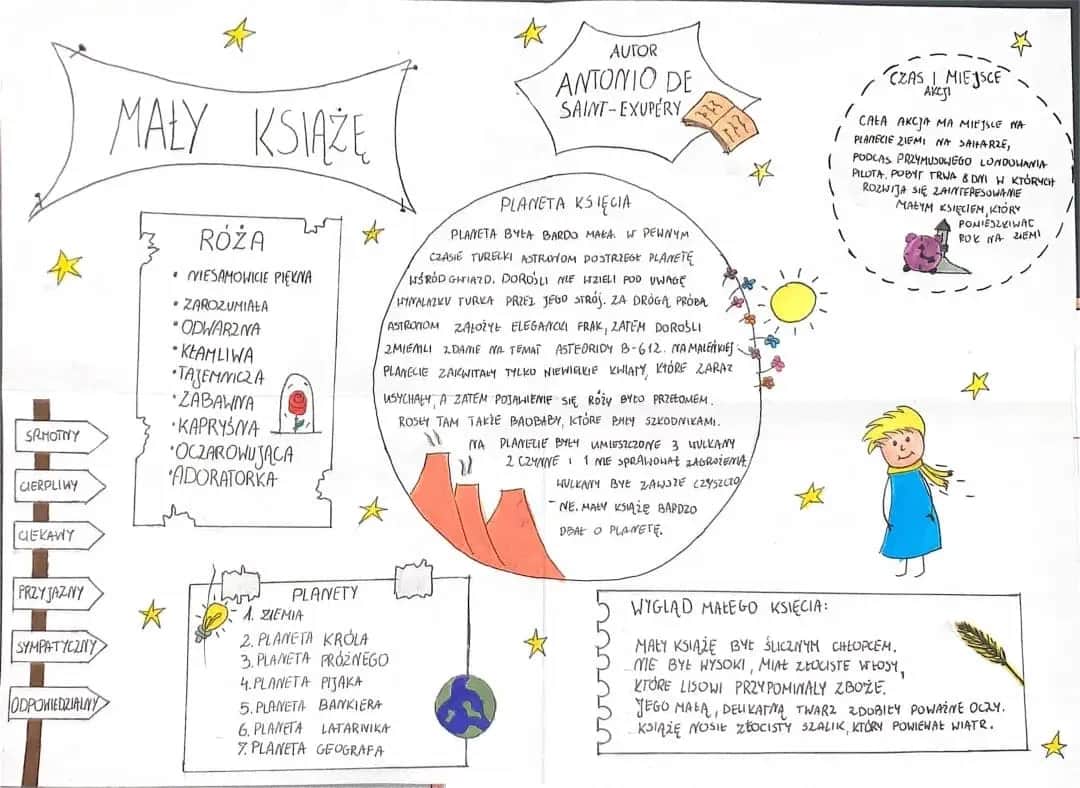 MAŁY KSIĄŻĘ
AUTOR
ANTONIO DE
SAINT-EXUPÉRY
CZAS I MIEJSCE
AKCJI
CAŁA AKCJA MA MIEJSCE NA
PLANECIE ZIEMI NA SAHARZE,
PODCAS PRZYMUSOWEGO LONDOWANIA
PILOTA. POBYT TRWA 8 DNI W KTÓRYCH
ROZWIJA SIĘ ZAINTERESOWANIE
MAŁYM KSIĘCIEM, KTÓRY
POMIESZKIWAĆ
ROK NA ZIEMI
RÓŻA
• NIESAMOWICIE PIĘKNA
• ZAROZUMIAŁA
• ODWARZNA
• KŁAMLIWA
• TAJEMNICZA
• ZABAWNA
• KAPRYŚNA
• OCZAROWUJĄCA
• ADORATORKA
PLANETA KSIĘCIA
PLANETA BYŁA BARDO MAŁA. W PEWNYM
CZASIE TURELKI ASTRONOM DOSTRZEGŁ PLANETĘ
WŚRÓD GWIAZD. DOROŚLI NIE WZIELI POD UWAGĘ
WYNALAZKU TURKA PRZEZ JEGO STRÓJ. ZA DRÓGĄ PRÓBĄ
ASTRONOM ZAŁOŻYŁ ELEGANCKI FRAK, ZATEM DOROŚLI
ZMIENILI ZDANIE NA TEMAT ASTEORIDY B-612. NA MALEŃKIEJ
PLANECIE ZAKWITAŁY TYLKO NIEWIELKIE KWIATY, KTÓRE ZARAZ
USYCHAŁY, A ZATEM POJAWIENIE SIĘ RÓŻY BYŁO PRZEŁOMEM.
ROSŁY TAM TAKŻE BAOBABY, KTÓRE BYŁY SZKODNIKAMI.
NA PLANECIE BYŁY UMIESZCZONE 3 WULKANY
2 CZYNNE I 1 NIE SPRAWOWAŁ ZAGROŻENIA.
WULKANY BYŁ ZAWSZE CZYSZCZO
-NE. MAŁY KSIĄŻĘ BARDZO
DBAŁ O PLANETĘ.
SAMOTNY
CIERPLIWY
CIEKAWY
PRZYJAZNY
SYMPATYCZNY
ODPOWIEDZIALNY
PLANETY
1. ZIEMIA
2. PLANETA KRÓLA
3. PLANETA PRÓŻNEGO
4. PLANETA PIJAKA
5. PLANETA BANKIERA
6. PLANETA LATARNIKA
7. PLANETA GEOGRAFA
WYGLĄD MAŁEGO KSIĘCIA:
MAŁY KSIĄŻĘ BYŁ ŚLICZNYM CHŁOPCEM.
NIE BYŁ WYSOKI, MIAŁ ZŁOCISTE WŁOSY,
KTÓRE LISOWI PRZYPOMINAŁY ZBOŻE.
JEGO MAŁĄ, DELIKATNĄ TWARZ ZDOBIŁY POWAŻNE OCZY.
KSIĄŻĘ NOSIŁ ZŁOCISTY SZALIK, KTÓRY POWIEWAŁ WIATR.